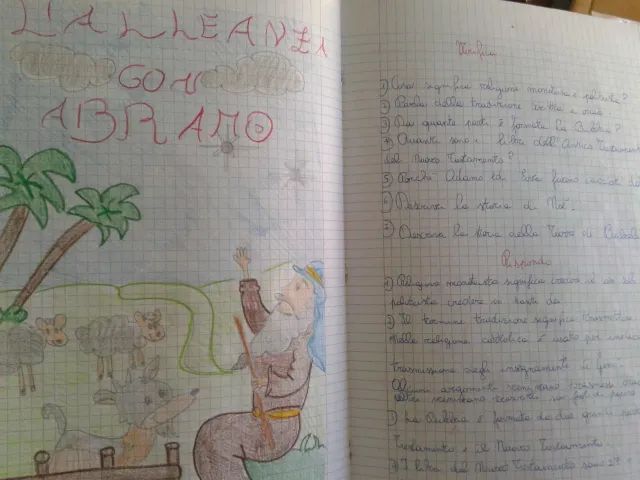 L'ALLEANZA
CON
ABRAMO
Verifica
1) Cosa significa religione monoteista e politeista?
2) Parla della tradizione scritta e orale
3) Da quante parti è formata la Bibbia?
4) Quanti sono i libri dell'Antico Testamento
del Nuovo Testamento?
5) Perché Adamo ed Eva furono cacciati
6) Descrivi la storia di Noè.
7) Descrivi la storia della Torre di Babele
Rispondo
1) Religione monoteista significa credere
politeista credere in tanti
2) Il termine tradizione significa trasmettere
nella religione cattolica è usato per
trasmissione degli insegnamenti di
Alcuni argomenti venivano
altri venivano su fogli di
3) La Bibbia è formata da due grandi
Testamento e il Nuovo Testamento.
4) I libri del Nuovo Testamento sono 27